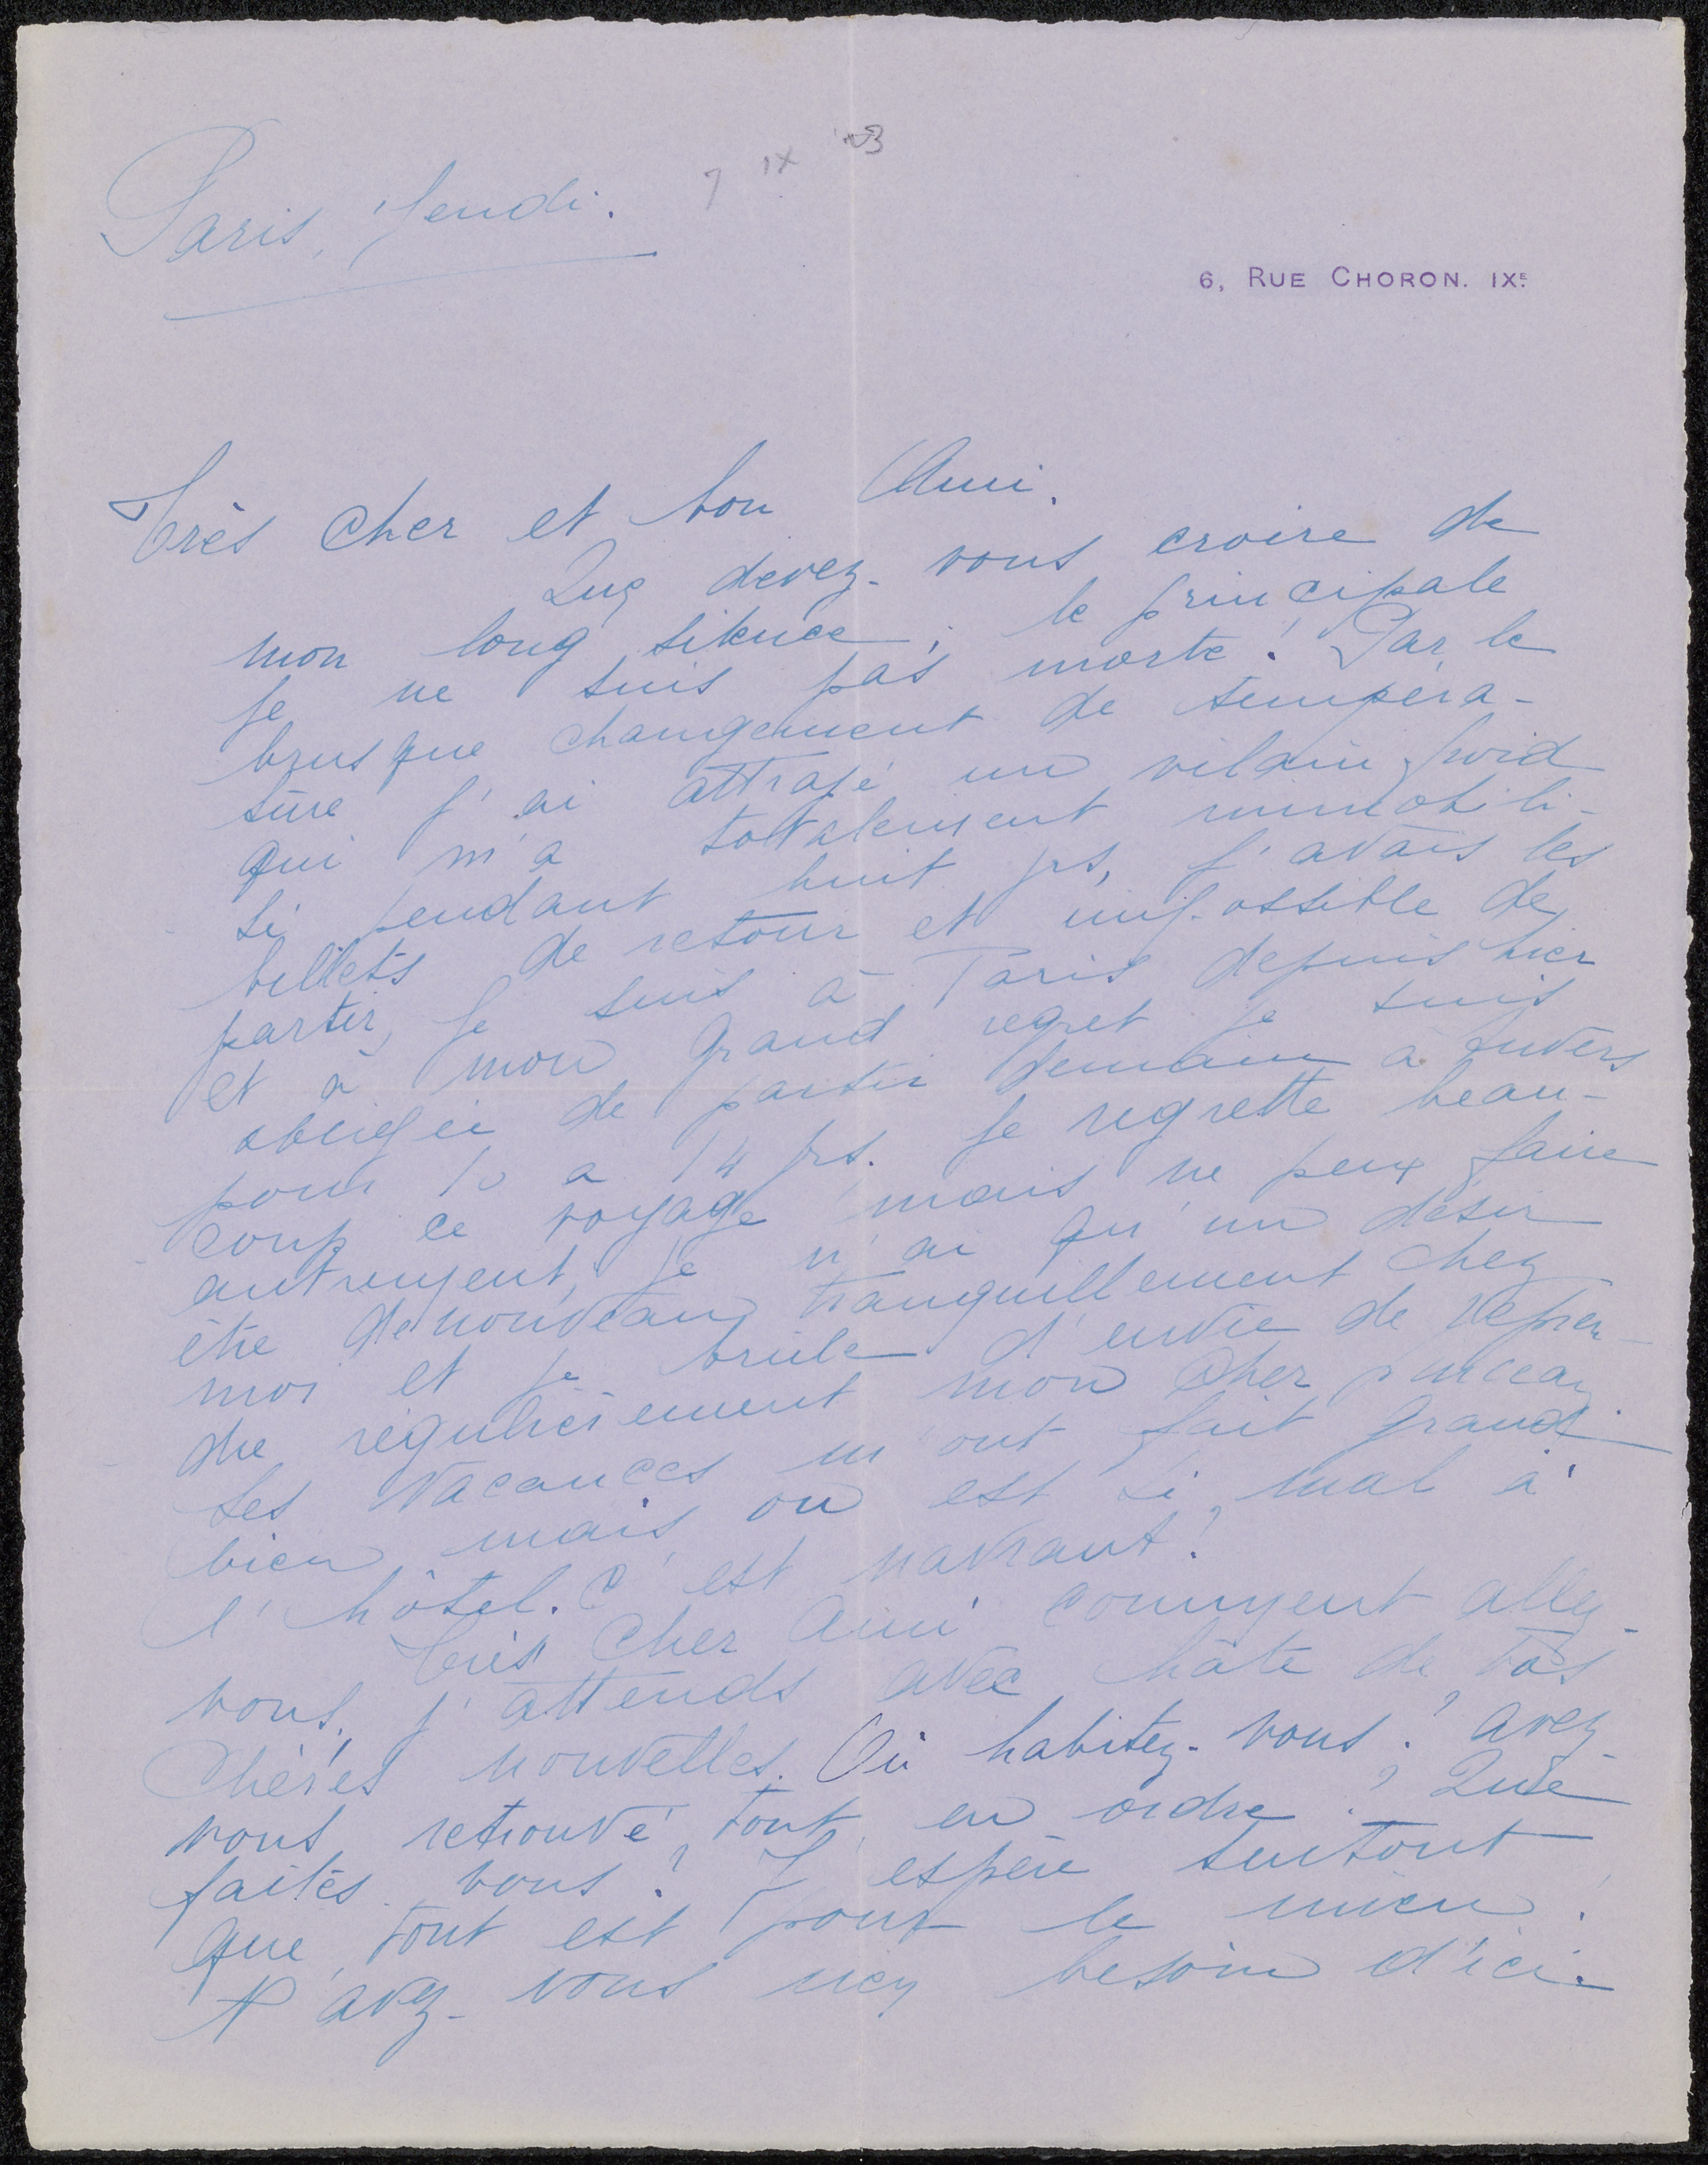 7 IX '23
Paris, Jeudi.
6, RUE CHORON. IXE.
Très Cher et bon Ami.
Que devez-vous croire de
mon long silence; le principale
je ne suis pas morte! Par le
brusque changement de tempéra-
ture j'ai attrapé un vilain froid
qui m'a totalement immobili-
sé pendant huit jrs, j'avais les
billets de retour et impossible de
partir, je suis à Paris depuis hier
et à mon grand regret je suis
obligée de partir demain à Anvers
pour 10 a 14 jrs. Je regrette beau-
coup ce voyage mais ne peux faire
autrement, je n'ai qu'un désir
être de nouveau tranquillement chez
moi et je brûle d'envie de repren-
dre régulièrement mon cher pinceau.
Les vacances m'ont fait grand
bien mais on est si mal à
l'hôtel. C'est navrant!
Très Cher Ami comment allez-
vous, j'attends avec hâte de vos
Chères nouvelles. Où habitez-vous? avez-
vous retrouvé tout en ordre? Que
faites vous? J'espère surtout
que tout est pour le mieu!
N'avez-vous rien besoin d'ici.